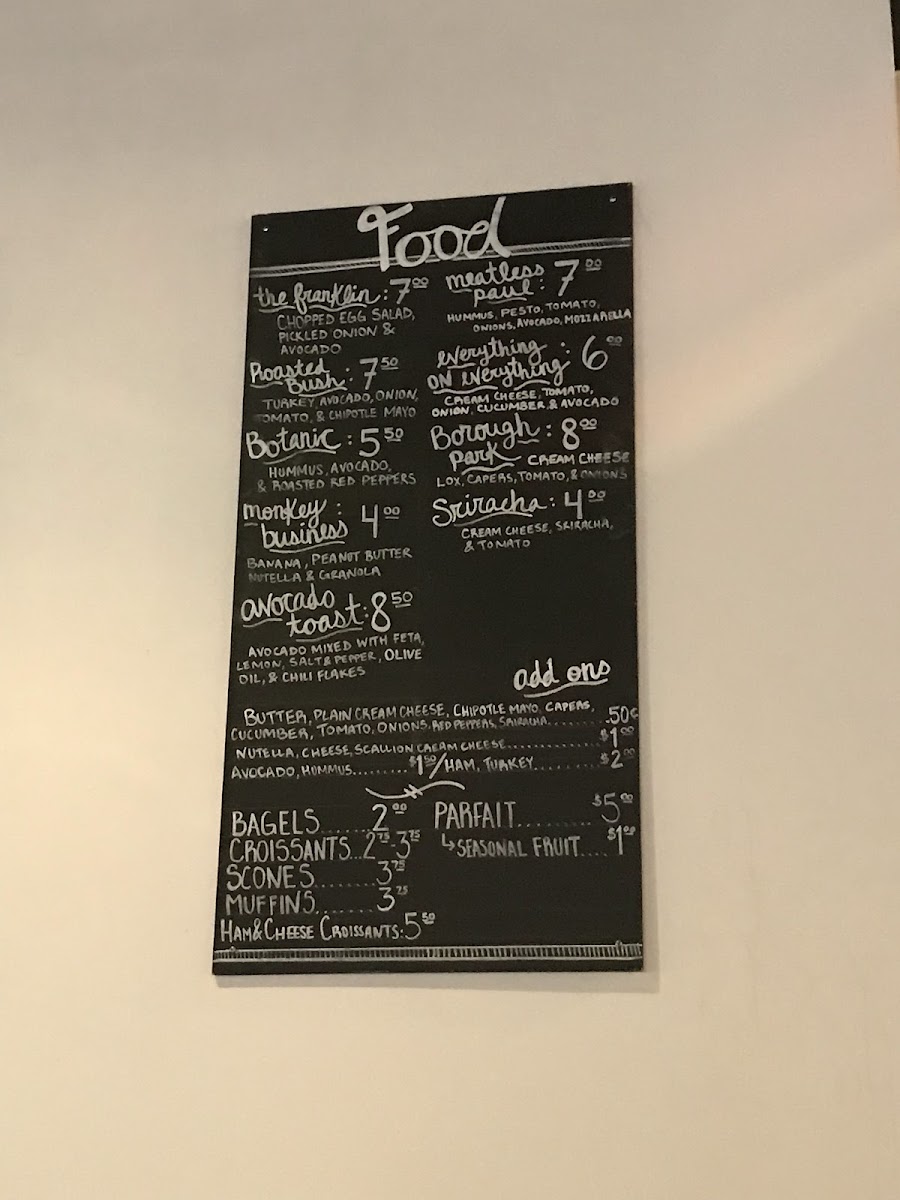 Food
the franklin: 7.00
CHOPPED EGG SALAD,
PICKLED ONION &
AVOCADO
Roasted
Bush: 7.50
TURKEY, AVOCADO, ONION,
TOMATO, & CHIPOTLE MAYO
Botanic: 5.50
HUMMUS, AVOCADO,
& ROASTED RED PEPPERS
monkey
business: 4.00
BANANA, PEANUT BUTTER
NUTELLA & GRANOLA
avocado
toast: 8.50
AVOCADO MIXED WITH FETA,
LEMON, SALT & PEPPER, OLIVE
OIL, & CHILI FLAKES
meatless
paul: 7.00
HUMMUS, PESTO, TOMATO,
ONIONS, AVOCADO, MOZZARELLA
everything
ON everything: 6.00
CREAM CHEESE, TOMATO,
ONION, CUCUMBER & AVOCADO
Borough: 8.00
park CREAM CHEESE
LOX, CAPERS, TOMATO, & ONIONS
Sriracha: 4.00
CREAM CHEESE, SRIRACHA,
& TOMATO
add ons
BUTTER, PLAIN CREAM CHEESE, CHIPOTLE MAYO, CAPERS,
CUCUMBER, TOMATO, ONIONS, RED PEPPERS, SRIRACHA........ .50¢
NUTELLA, CHEESE, SCALLION CREAM CHEESE............ $1.00
AVOCADO, HUMMUS......... $1.50/HAM, TURKEY........... $2.00
BAGELS...... 2.00
CROISSANTS... 2.75-3.75
SCONES........ 3.75
MUFFINS....... 3.25
HAM & CHEESE CROISSANTS: 5.50
PARFAIT......... $5.00
↳ SEASONAL FRUIT.... $1.00